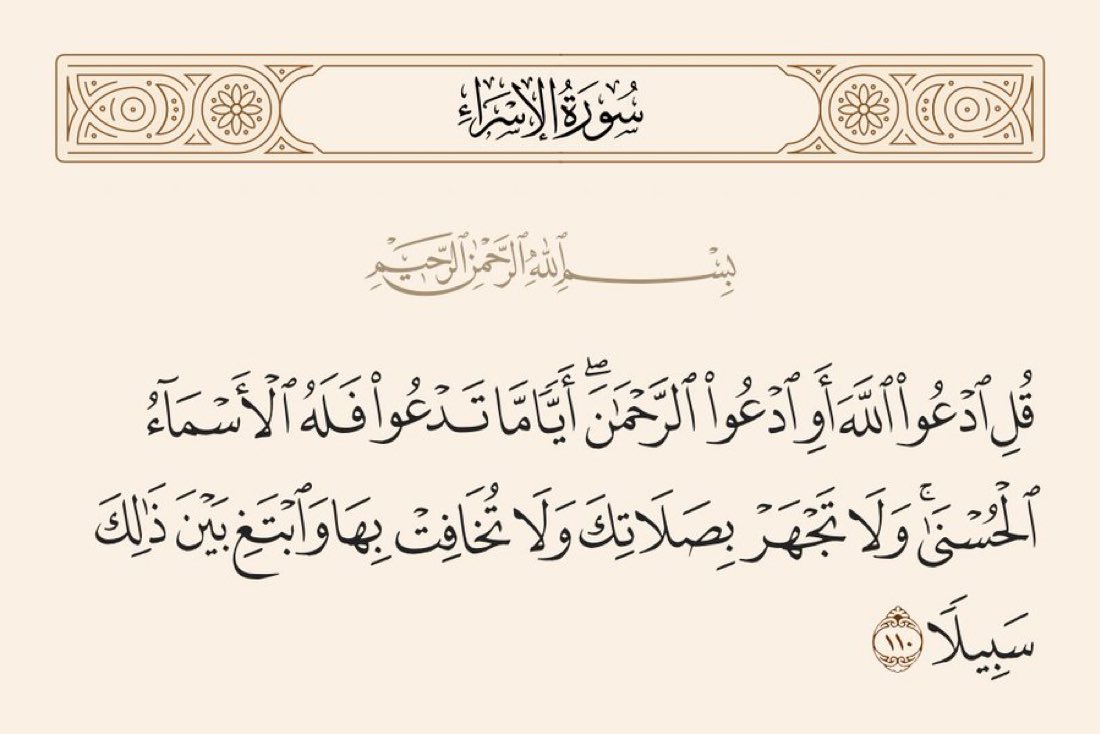 سُورَةُ الإِسْرَاءِ
بِسْمِ ٱللَّهِ ٱلرَّحْمَٰنِ ٱلرَّحِيمِ
قُلِ ٱدْعُوا۟ ٱللَّهَ أَوِ ٱدْعُوا۟ ٱلرَّحْمَـٰنَ ۖ أَيًّا مَّا تَدْعُوا۟ فَلَهُ ٱلْأَسْمَآءُ
ٱلْحُسْنَىٰ ۚ وَلَا تَجْهَرْ بِصَلَاتِكَ وَلَا تُخَافِتْ بِهَا وَٱبْتَغِ بَيْنَ ذَٰلِكَ
سَبِيلًا ١١٠